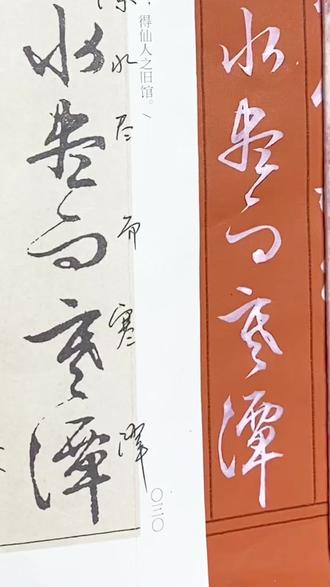 水盡而寒潭
得仙人之旧馆。
〇三〇
水尽而寒潭
水盡而寒潭